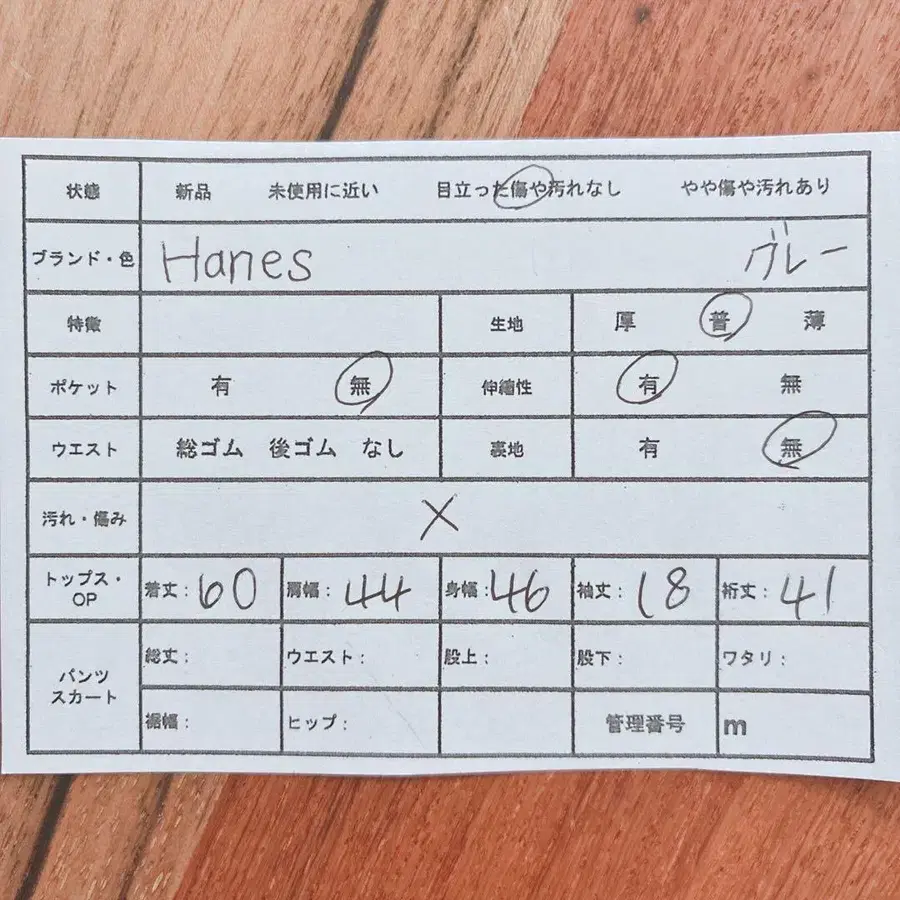 状態 新品 未使用に近い 目立った傷や汚れなし やや傷や汚れあり
ブランド・色 Hanes グレー
特徴 生地 厚 普 薄
ポケット 有 無 伸縮性 有 無
ウエスト 総ゴム 後ゴム なし 裏地 有 無
汚れ・傷み ×
トップス・OP 着丈: 60 肩幅: 44 身幅: 46 袖丈: 18 裄丈: 41
パンツ スカート 総丈: ウエスト: 股上: 股下: ワタリ:
裾幅: ヒップ: 管理番号 m